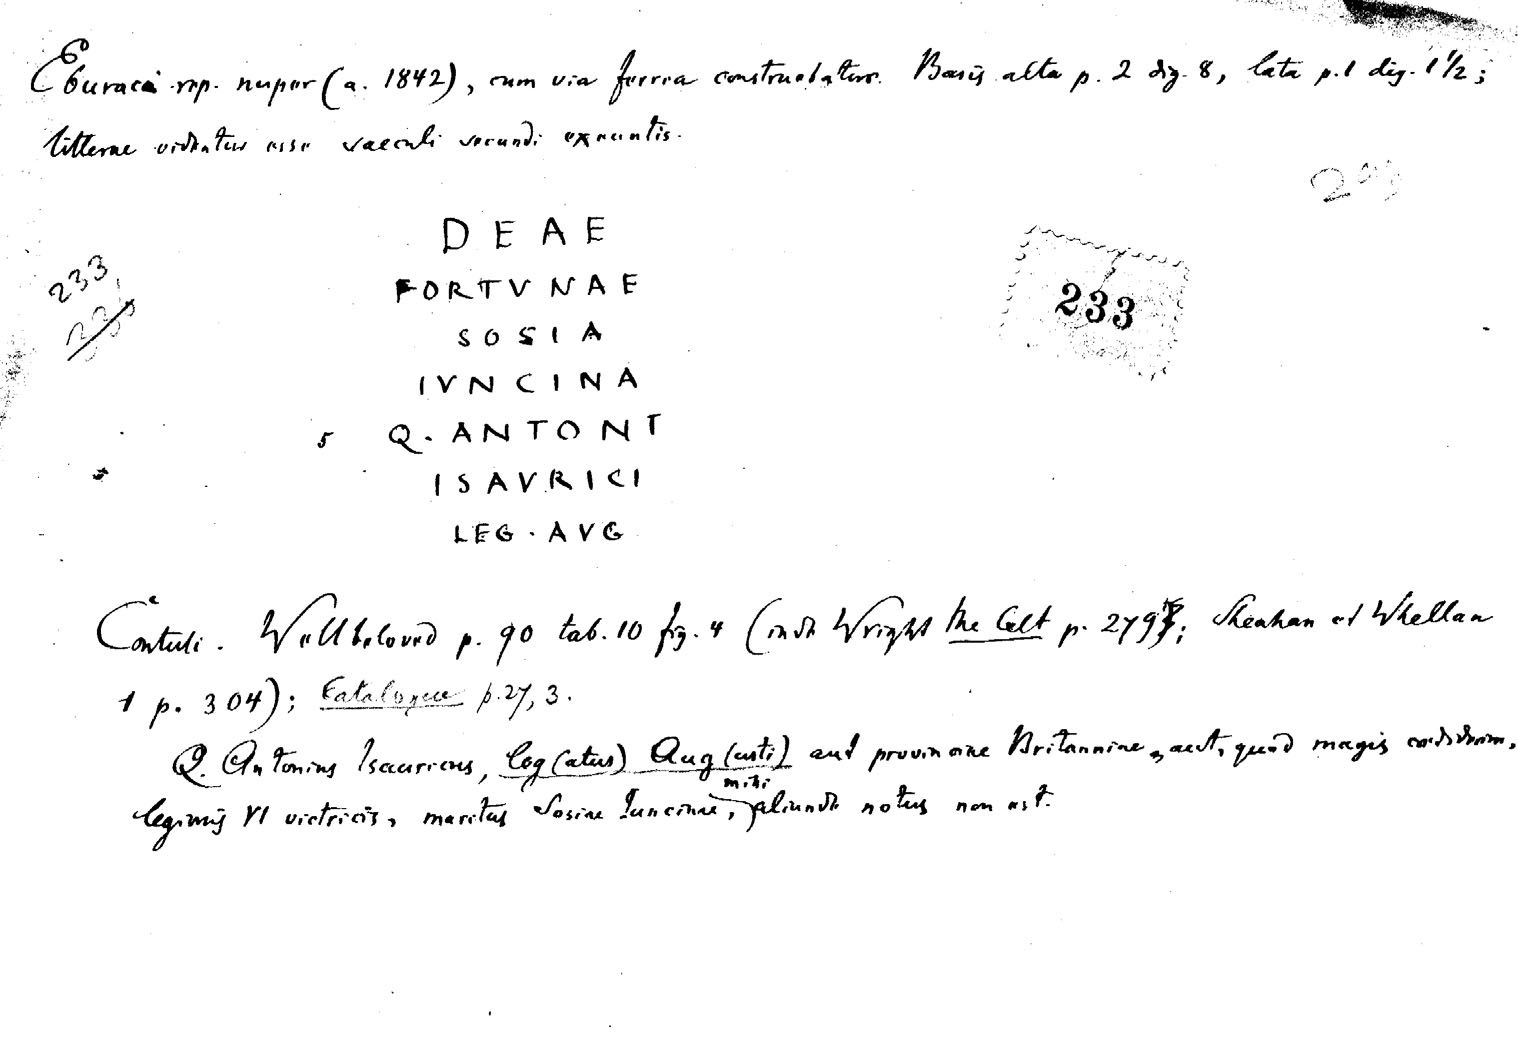 Eburaci rep. nuper (a. 1842), cum via ferrea construebatur. Basis alta p. 2 dig. 8, lata p. 1 dig. 1 1/2;
litterae videntur esse saeculi secundi exeuntis.
DEAE
233
FORTVNAE
233
SOSIA
IVNCINA
5 Q. ANTONI
ISAVRICI
LEG · AVG
Contuli. Wellbeloved p. 90 tab. 10 fig. 4 (inde Wright the Celt p. 279; Sheahan et Whellan
1 p. 304); Catalogue p. 27, 3.
Q. Antonius Isauricus, leg(atus) Aug(usti) aut provinciae Britanniae, aut, quod magis crediderim,
legionis VI victricis, maritus Sosiae Iuncinae, mihi aliunde notus non est.